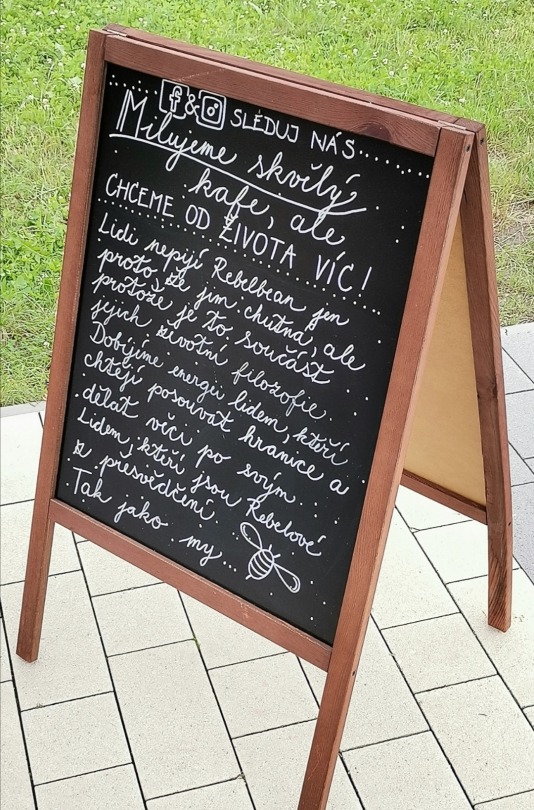 f & SLEDUJ NÁS
Milujeme skvělý
kafe, ale
CHCEME OD ŽIVOTA VÍC!
Lidi nepyjí Rebelbean jen
proto, že jim chutná, ale
protože je to součást
jejich životní filozofie.
Dobíjíme energií lidem, kteří
chtějí posouvat hranice a
dělat věci po svým.
Lidem, kteří jsou Rebelové
z přesvědčení.
Tak jako my...